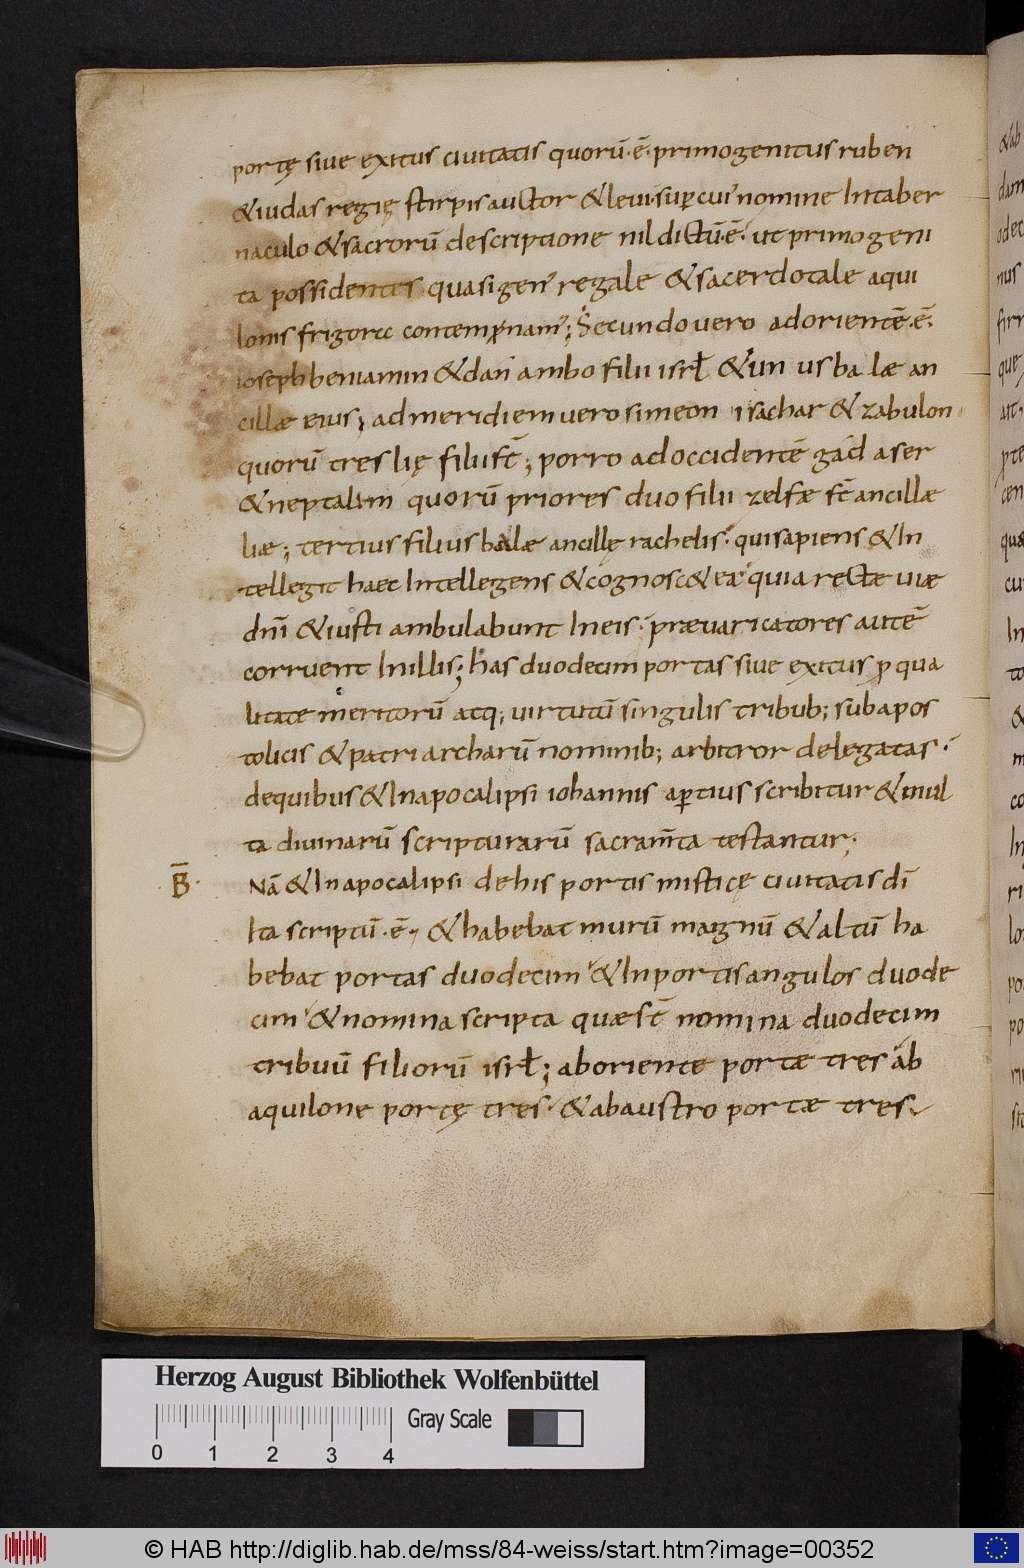 portę siue exitus ciuitatis quorū·ē· primogenitus ruben
& iudas regię stirpis auctor & leui· sup cui' nomine In taber
naculo & sacrorū descriptione nil dictū·ē· ut primogeni
ta possidentes quasi gen' regale & sacerdotale aqui
lonis frigore contempnant'; Secundo uero ad orientē·ē·
ioseph beniamin & dan ambo filii isrł & un us balæ an
cillæ eius; ad meridiem uero simeon isachar & zabulon
quorū tres lię filii st̄; porro ad occidentē gad aser
& neptalim quorū priores duo filii zelfæ st̄ ancillæ
liæ; tertius filius balæ ancillę rachelis· qui sapiens & In
tellegit haec Intellegens & cognosc& ea' quia rectæ uiæ
dnī & iusti ambulabunt In eis· præuaricatores autē
corruent In illis; has duodecim portas siue exitus p qua
litate meritorū atq; uirtutū singulis tribub; sub apos
tolicis & patriarcharū nominib; arbitror delegatas·
de quibus & In apocalipsi iohannis aptius scribitur & mul
ta diuinarū scripturarū sacram̄ta testantur;
B̄· Nā & In apocalipsi de his portis misticę ciuitatis dī
Ita scriptū·ē· & habebat murū magnū & altū ha
bebat portas duodecim' & In portis angulos duode
cim' & nomina scripta quæ st̄ nomina duodecim
tribuū filiorū isrł; ab oriente portæ tres ab
aquilone portę tres· & ab austro portæ tres·
&ab
dam
odec
nus
firr
que
cen
quæ
cu
In
to
&
co
In
ri
lo
po
po
Herzog August Bibliothek Wolfenbüttel
Gray Scale
0 1 2 3 4
© HAB http://diglib.hab.de/mss/84-weiss/start.htm?image=00352